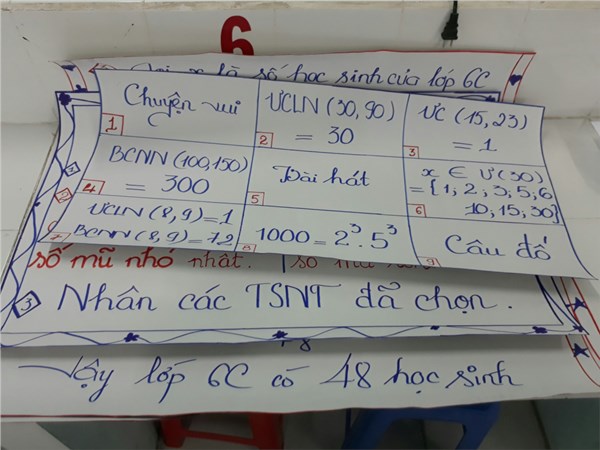 6
Gọi x là số học sinh của lớp 6C
Chuyện vui
1
ƯCLN (30, 90)
= 30
2
ƯC (15, 23)
= 1
3
BCNN (100, 150)
= 300
4
Bài hát
5
x ∈ Ư (30)
= {1; 2; 3; 5; 6
10; 15; 30}
6
ƯCLN (8, 9) = 1
BCNN (8, 9) = 72
7
1000 = 2³. 5³
8
Câu đố
9
số mũ nhỏ nhất. số mũ
3 Nhân các TSNT đã chọn.
Vậy lớp 6C có 48 học sinh